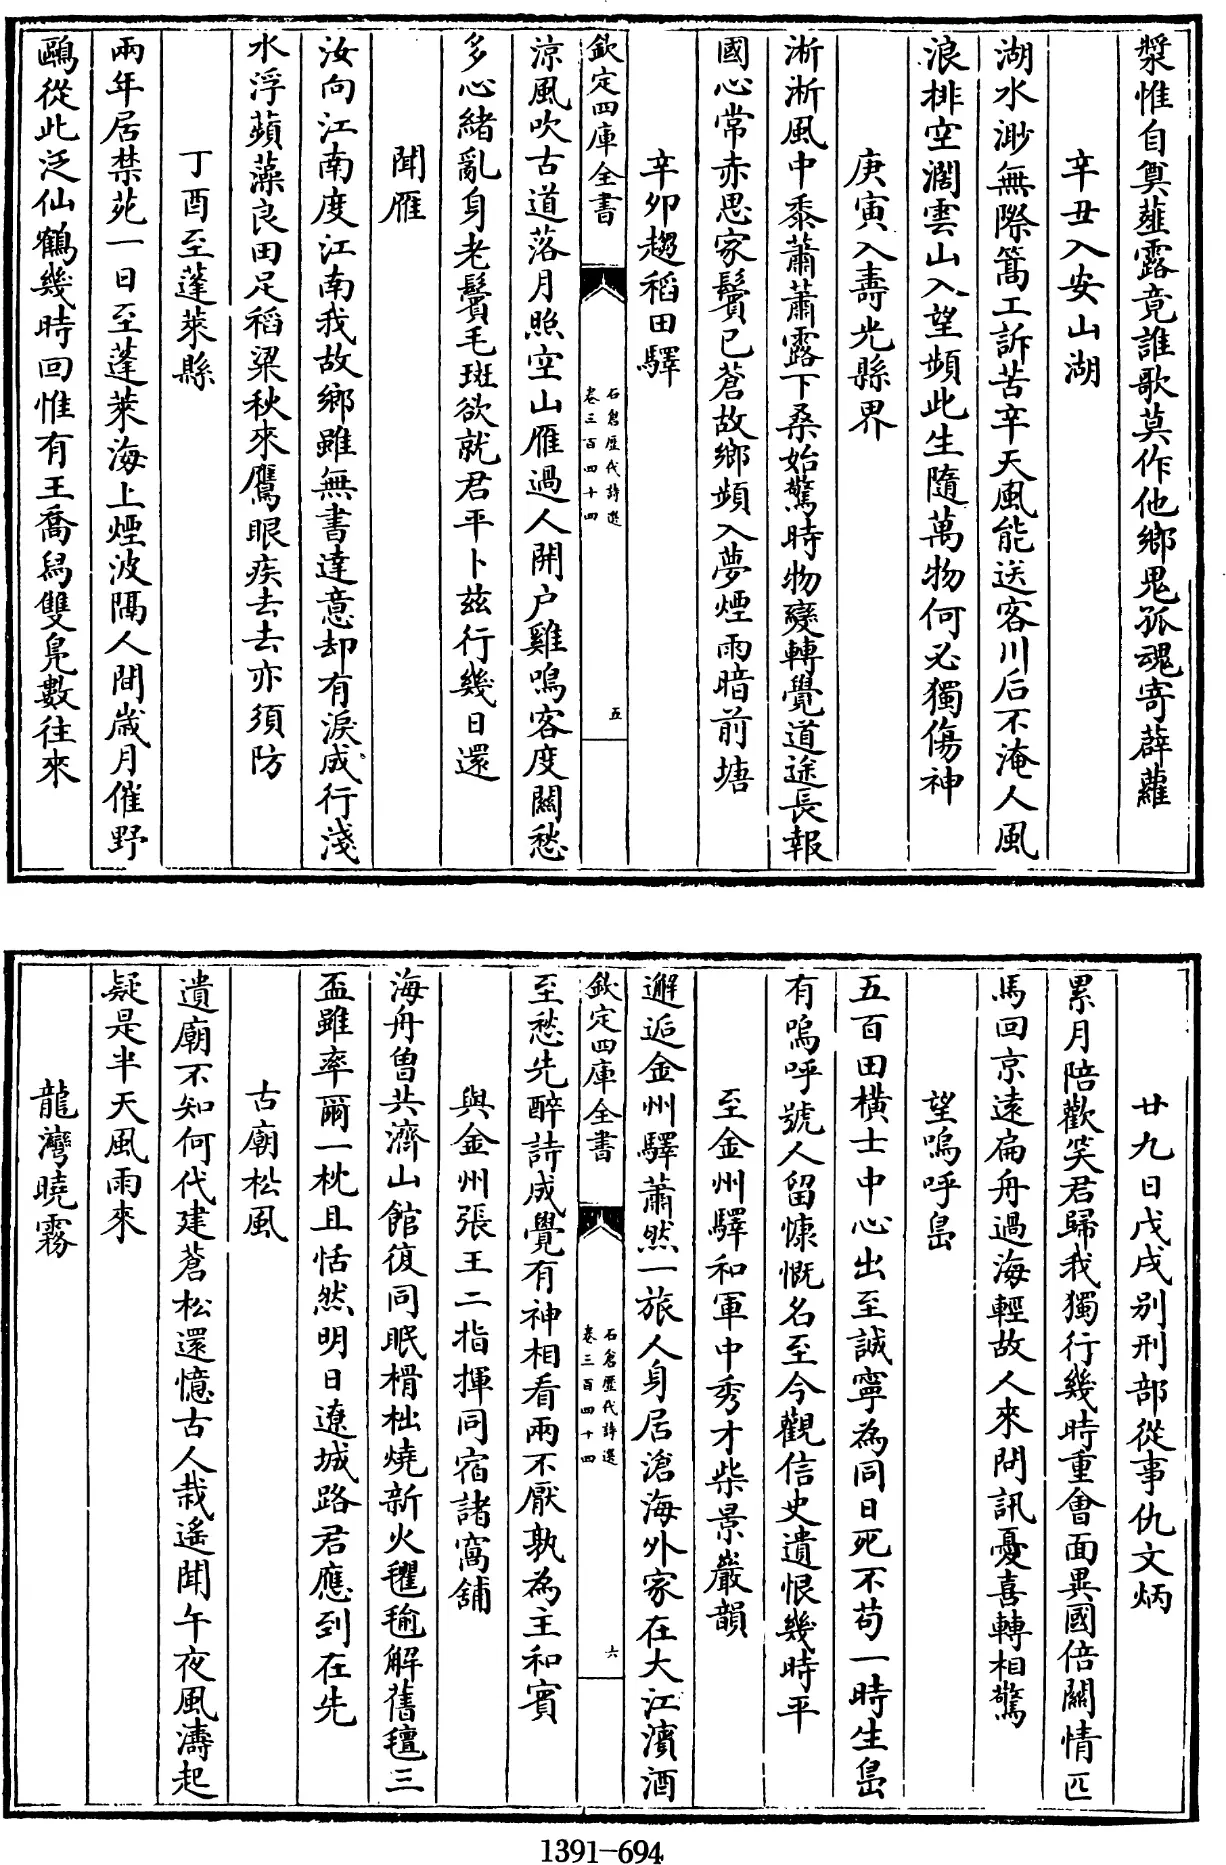 漿惟自奠薤露竟誰歌莫作他鄉鬼孤魂寄薜蘿
辛丑入安山湖
湖水渺無際篙工訴苦辛天風能送客川后不淹人風
浪排空濶雲山入望頻此生隨萬物何必獨傷神
庚寅入壽光縣界
淅淅風中黍蕭蕭露下桑始驚時物變轉覺道途長報
國心常赤思家鬢已蒼故鄉頻入夢煙雨暗前塘
辛卯趨稻田驛
欽定四庫全書
石倉歷代詩選
卷三百四十四
五
涼風吹古道落月照空山雁過人開户雞鳴客度關愁
多心緒亂身老鬢毛斑欲就君平卜兹行幾日還
聞雁
汝向江南度江南我故鄉雖無書達意却有淚成行淺
水浮蘋藻良田足稻粱秋來鷹眼疾去去亦須防
丁酉至蓬萊縣
兩年居禁苑一日至蓬萊海上煙波隔人間歲月催野
鷗從此泛仙鶴幾時回惟有王喬舄雙鳧數往來
廿九日戊戌别刑部從事仇文炳
累月陪歡笑君歸我獨行幾時重會面異國倍關情匹
馬回京遠扁舟過海輕故人來問訊憂喜轉相驚
望嗚呼島
五百田横士中心出至誠寧為同日死不苟一時生島
有嗚呼號人留慷慨名至今觀信史遺恨幾時平
至金州驛和軍中秀才柴景巖韻
邂逅金州驛蕭然一旅人身居滄海外家在大江濱酒
欽定四庫全書
石倉歷代詩選
卷三百四十四
六
至愁先醉詩成覺有神相看兩不厭孰為主和賓
與金州張王二指揮同宿諸窩舖
海舟曽共濟山館復同眠榾柮燒新火氍毹解舊氊三
盃雖率爾一枕且恬然明日遼城路君應到在先
古廟松風
遺廟不知何代建蒼松還憶古人栽遙聞午夜風濤起
疑是半天風雨來
龍灣曉霧
1391-694